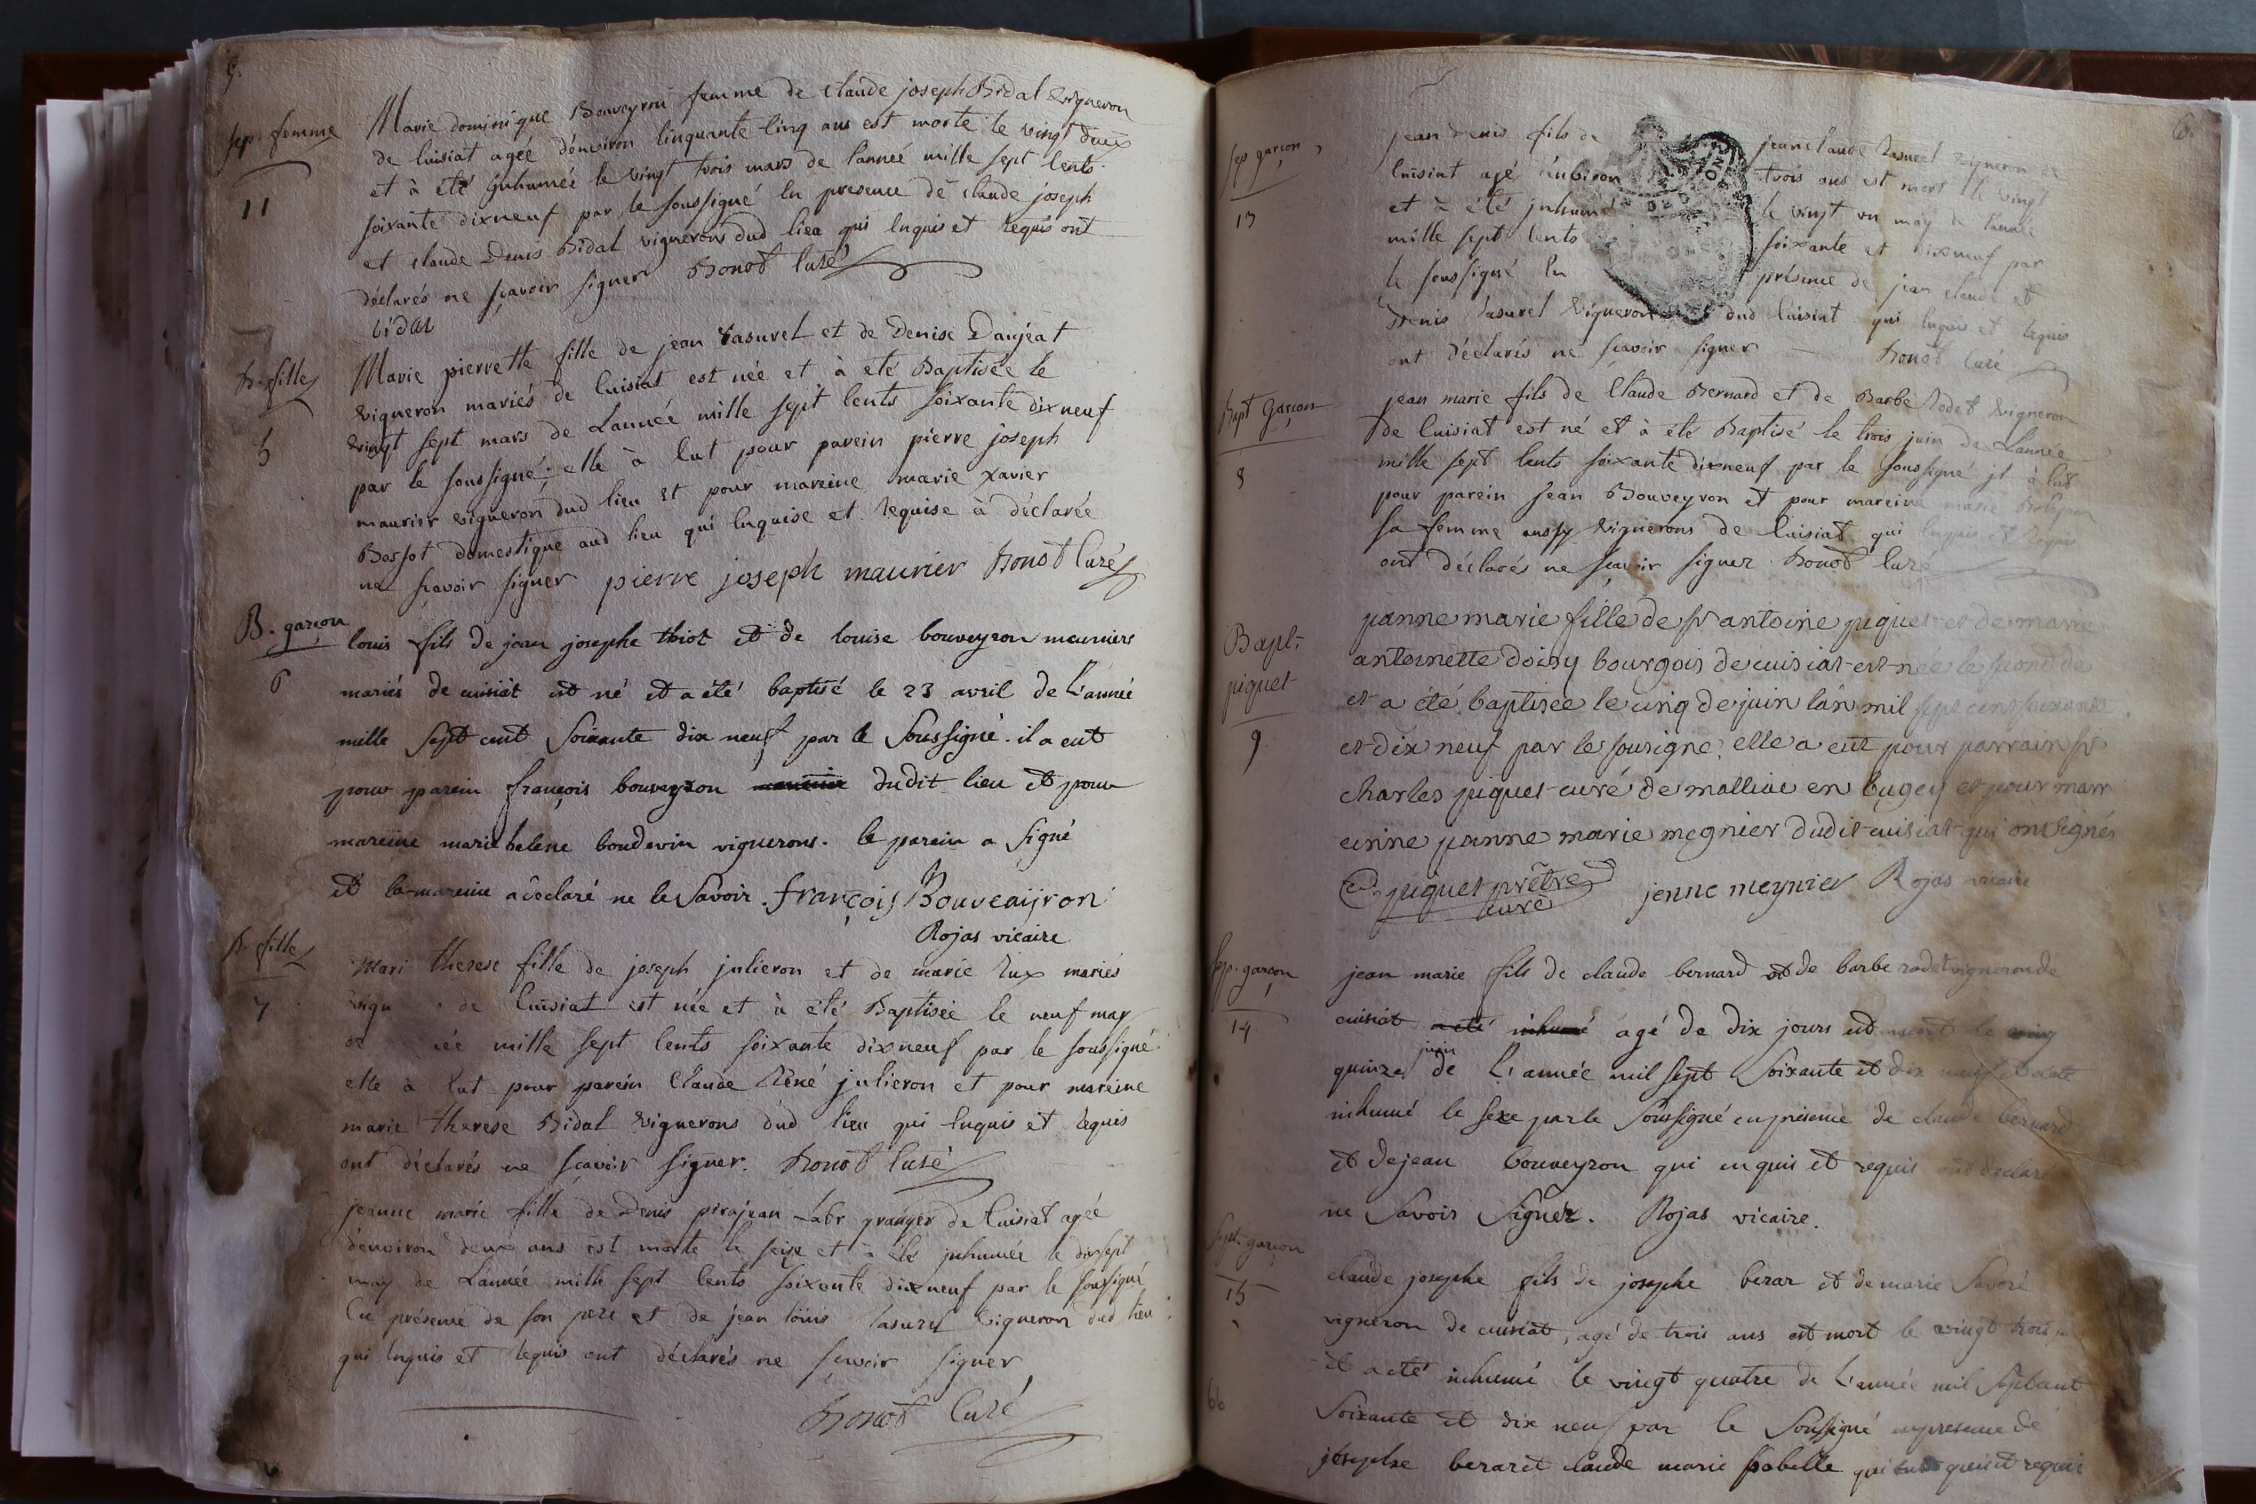 5.
sep. femme
11
Marie dominique Bouveyron femme de Claude joseph Bidal vigneron
de Cuisiat agée d'énviron Cinquante Cinq ans est morte le vingt deux
et à été Jnhumée le vingt trois mars de l'anneé mille sept Cents
soixante dixneuf par le soussigné En presence de Claude joseph
et Claude Denis Bidal vignerons dud lieu qui Enquis et Requis ont
déclarés ne sçavoir signer Bonot Curé
bidal
B. fille
5
Marie pierrette fille de jean Vasurel et de Denise Danjeat
vigneron mariés de Cuisiat est née et à eté Baptisée le
vingt sept mars de L'année mille sept Cents soixante dixneuf
par le soussigné; elle à Eut pour parein pierre joseph
maurier vigneron dud lieu et pour mareine marie xavier
Bossot domestique aud lieu qui Enquise et Requise à déclarée
ne sçavoir signer pierre joseph maurier Bonot Curé
B. garçon
6
louis fils de jean josephe thiot et de louise bouveyron meuniers
mariés de cuisiat est né et a été baptisé le 23 avril de L'année
mille Sept cent Soixante dix neuf par le Soussigné. il a eut
pour parein françois bouveyron dudit lieu et pour
mareine marie helene boudevin vignerons. le parein a Signé
et la mareine a declaré ne le Savoir. françois Bouveaijron
Rojas vicaire
B. fille
7
Mari therese fille de joseph julieron et de marie Rux mariés
vigu de Cuisiat est née et à été Baptisée le neuf may
de ée mille sept Cents soixante dixneuf par le soussigné
elle à Eut pour parein Claude René julieron et pour mareine
marie therese Bidal vignerons dud lieu qui Enquis et Requis
ont déclarés ne sçavoir signer. Bonot Curé
jeanne marie fille de Denis pirajean Labr granger de Cuisiat agée
d'environ deux ans est morte le seize et à été jnhumée le dixsept
may de L'année mille sept Cents soixante dixneuf par le soussigné
En présence de son pere et de jean loüis Vasurel vigneron dud lieu
qui Enquis et Requis ont déclarés ne sçavoir signer
Bonot Curé
6.
sep garçon
13
jean Denis fils de jean Claude Vasurel vigneron de
Cuisiat agé d'énviron trois ans est mort le vingt
et à été jnhumé le vingt un may de L'année
mille sept Cents soixante et dixneuf par
le soussigné En présence de jean Claude et
Denis Vasurel vigneron dud Cuisiat qui Enquis et Requis
ont déclarés ne sçavoir signer Bonot Curé
Bapt Garçon
8
jean marie fils de Claude Bernard et de Barbe Rodet vigneron
de Cuisiat est né et à été Baptisé le trois juin de L'année
mille sept Cents soixante dixneuf par le soussigné jl à Eut
pour parein Jean Bouveyron et pour mareine marie
sa femme aussy vignerons de Cuisiat qui Enquis et Requis
ont déclarés ne sçavoir signer Bonot Curé
Bapt.
piquet
9
janne marie fille de sr antoine piquet et de marie
antoinette doisy bourgois de cuisiat est née le
et a été baptisée le cinq de juin l'an mil sept cens soixante
et dix neuf par le sousigné, elle a eut pour parrain sr
charles piquet curé de malliac en bugey et pour marr
einne janne marie megnier dudit cuisiat qui ont signés
piquet prêtre jenne meynier Rojas vicaire
curé
sep. garçon
14
jean marie fils de claude bernard et de barbe rodet vigneron de
cuisiat a eté inhumé agé de dix jours est mort le
quinze juin de L'année mil sept Soixante et dix neuf et a eté
inhumé le seze par le Soussigné en présence de claude bernard
et de jean bouveyron qui enquis et requis ont declaré
ne Savoir Signer. Rojas vicaire.
Sept. garçon
15
claude josephe fils de josephe berar et de marie Savoré
vigneron de cuisiat, agé de trois ans est mort le vingt trois
et a eté inhumé le vingt quatre de L'année mil Septcent
Soixante et dix neuf par le Soussigné en presence de
josephe berar et claude marie isabelle qui enquis et requis
66